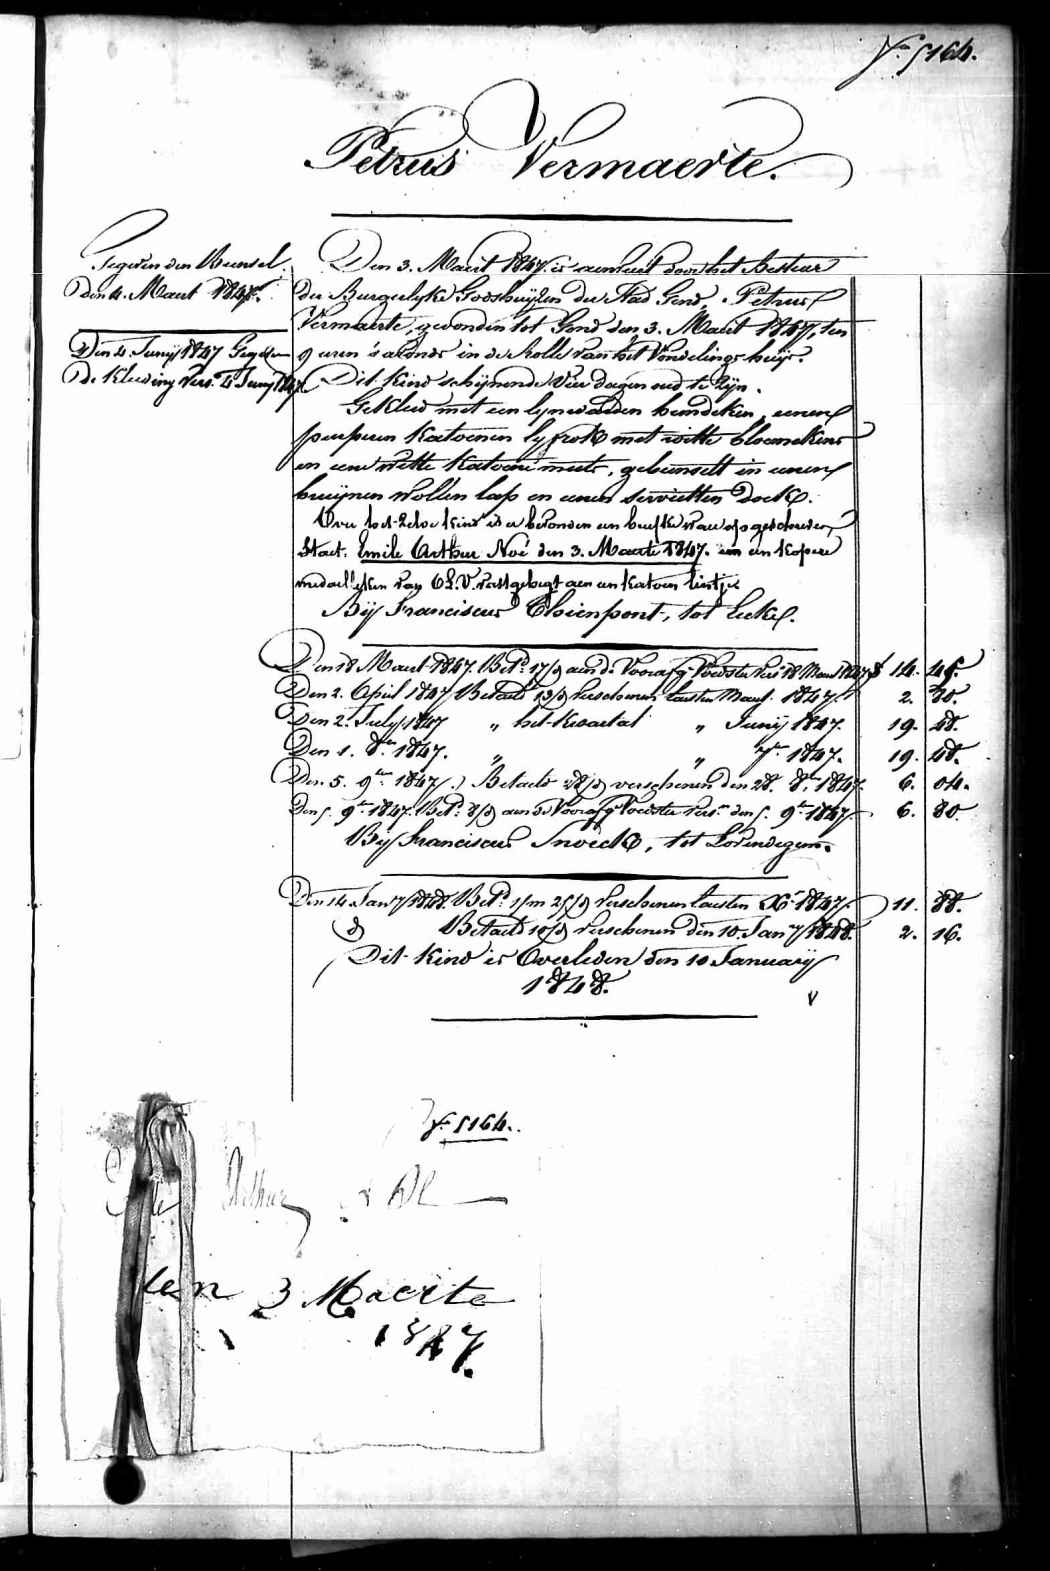 N.º 5164.
Petrus Vermaerte.
Gegeven den Bunsel
den 4. Maert 1847.
Den 4. Junij 1847 Gegeven
De Kleeding Vers. 4 Junij 1847
Den 3. Maert 1847. is aenveert door het Bestuer
der Burgerlyke Godshuijzen der Stad Gend, Petrus
Vermaerte, gevonden tot Gend den 3. Maert 1847, ten
9 uren s'avonds in de Rolle van het Vondelings-huys.
Dit kind schynende Vier dagen oud te zyn.
Gekleed met een lynwaeden hemdeken, eenen
purpuren Katoenen lyfrok met witte bloemekens
en eene witte katoene muts, gebunselt in eenen
bruijnen wollen lap en eenen servietten Doek.
Over het zelve kind is er bevonden een briefke waer op geschreven
Staet. Emile Arthur Noé den 3. Maerte 1847. en een kopere
medaelleken van O.L.V. vastgehegt aen een katoen lintje
Bij Franciscus Thienpont, tot Eecke.
Den 18 Maert 1847. Bet.d 17/d aen de Voorafg. Voedster Vers 18 Maert 1847 14. 45.
Den 2. April 1847 Betaeld 13/d Verschenen laesten Maert 1847. 2. 70.
Den 2. July 1847 " het kwartael " Junij 1847. 19. 48.
Den 1. 8.er 1847. " " 7.er 1847. 19. 48.
Den 5. 9.er 1847 Betaeld 28/d verschenen den 28. 8.er 1847. 6. 04.
Den 5. 9.er 1847. Bet.d 8/d aen de Voorafg. Voedster Vers. den 5. 9.er 1847 6. 80.
Bij Franciscus Snoeck, tot Lovendegem.
Den 14 Jan.y 1848. Bet.d 1/m 25/d Verschenen laesten X.er 1847. 11. 88.
d Betaeld 10/d Verschenen den 10 Jan.y 1848. 2. 16.
Dit kind is Overleden den 10 January
1848.
N.º 5164.
Arthur
den 3 Maerte
1847.